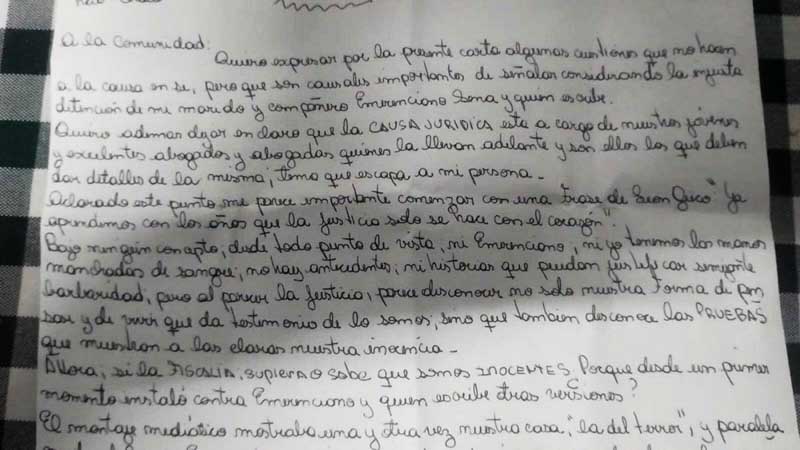 A la Comunidad:
Quiero expresar por la presente carta algunas cuestiones que no hacen
a la causa en si, pero que son causales importantes de señalar considerando la injusta
detención de mi marido y compañero Emerenciano Sena y quien escribe.
Quiero ademas dejar en claro que la CAUSA JURIDICA esta a cargo de nuestros jóvenes
y excelentes abogados y abogadas quienes la llevan adelante y son ellos los que deben
dar detalles de la misma, tema que escapa a mi persona.-
Aclarado este punto me parece importante comenzar con una frase de Leon Gieco "Ya
aprendimos con los años que la justicia solo se hace con el corazón".
Bajo ningún concepto, desde todo punto de vista, ni Emerenciano, ni yo tenemos las manos
manchadas de sangre, no hay antecedentes, ni historias que puedan justificar semejante
barbaridad, pero al parecer la justicia, parece desconocer no solo nuestra forma de pen
sar y de vivir que da testimonio de lo somos, sino que tambien desconoce las PRUEBAS
que muestran a las claras nuestra inocencia.-
Ahora, si la FISCALIA, supiera o sabe que somos INOCENTES. Porque desde un primer
momento instaló contra Emerenciano y quien escribe otras versiones?
El montaje mediático mostraba una y otra vez nuestra casa, "la del terror", y paralela